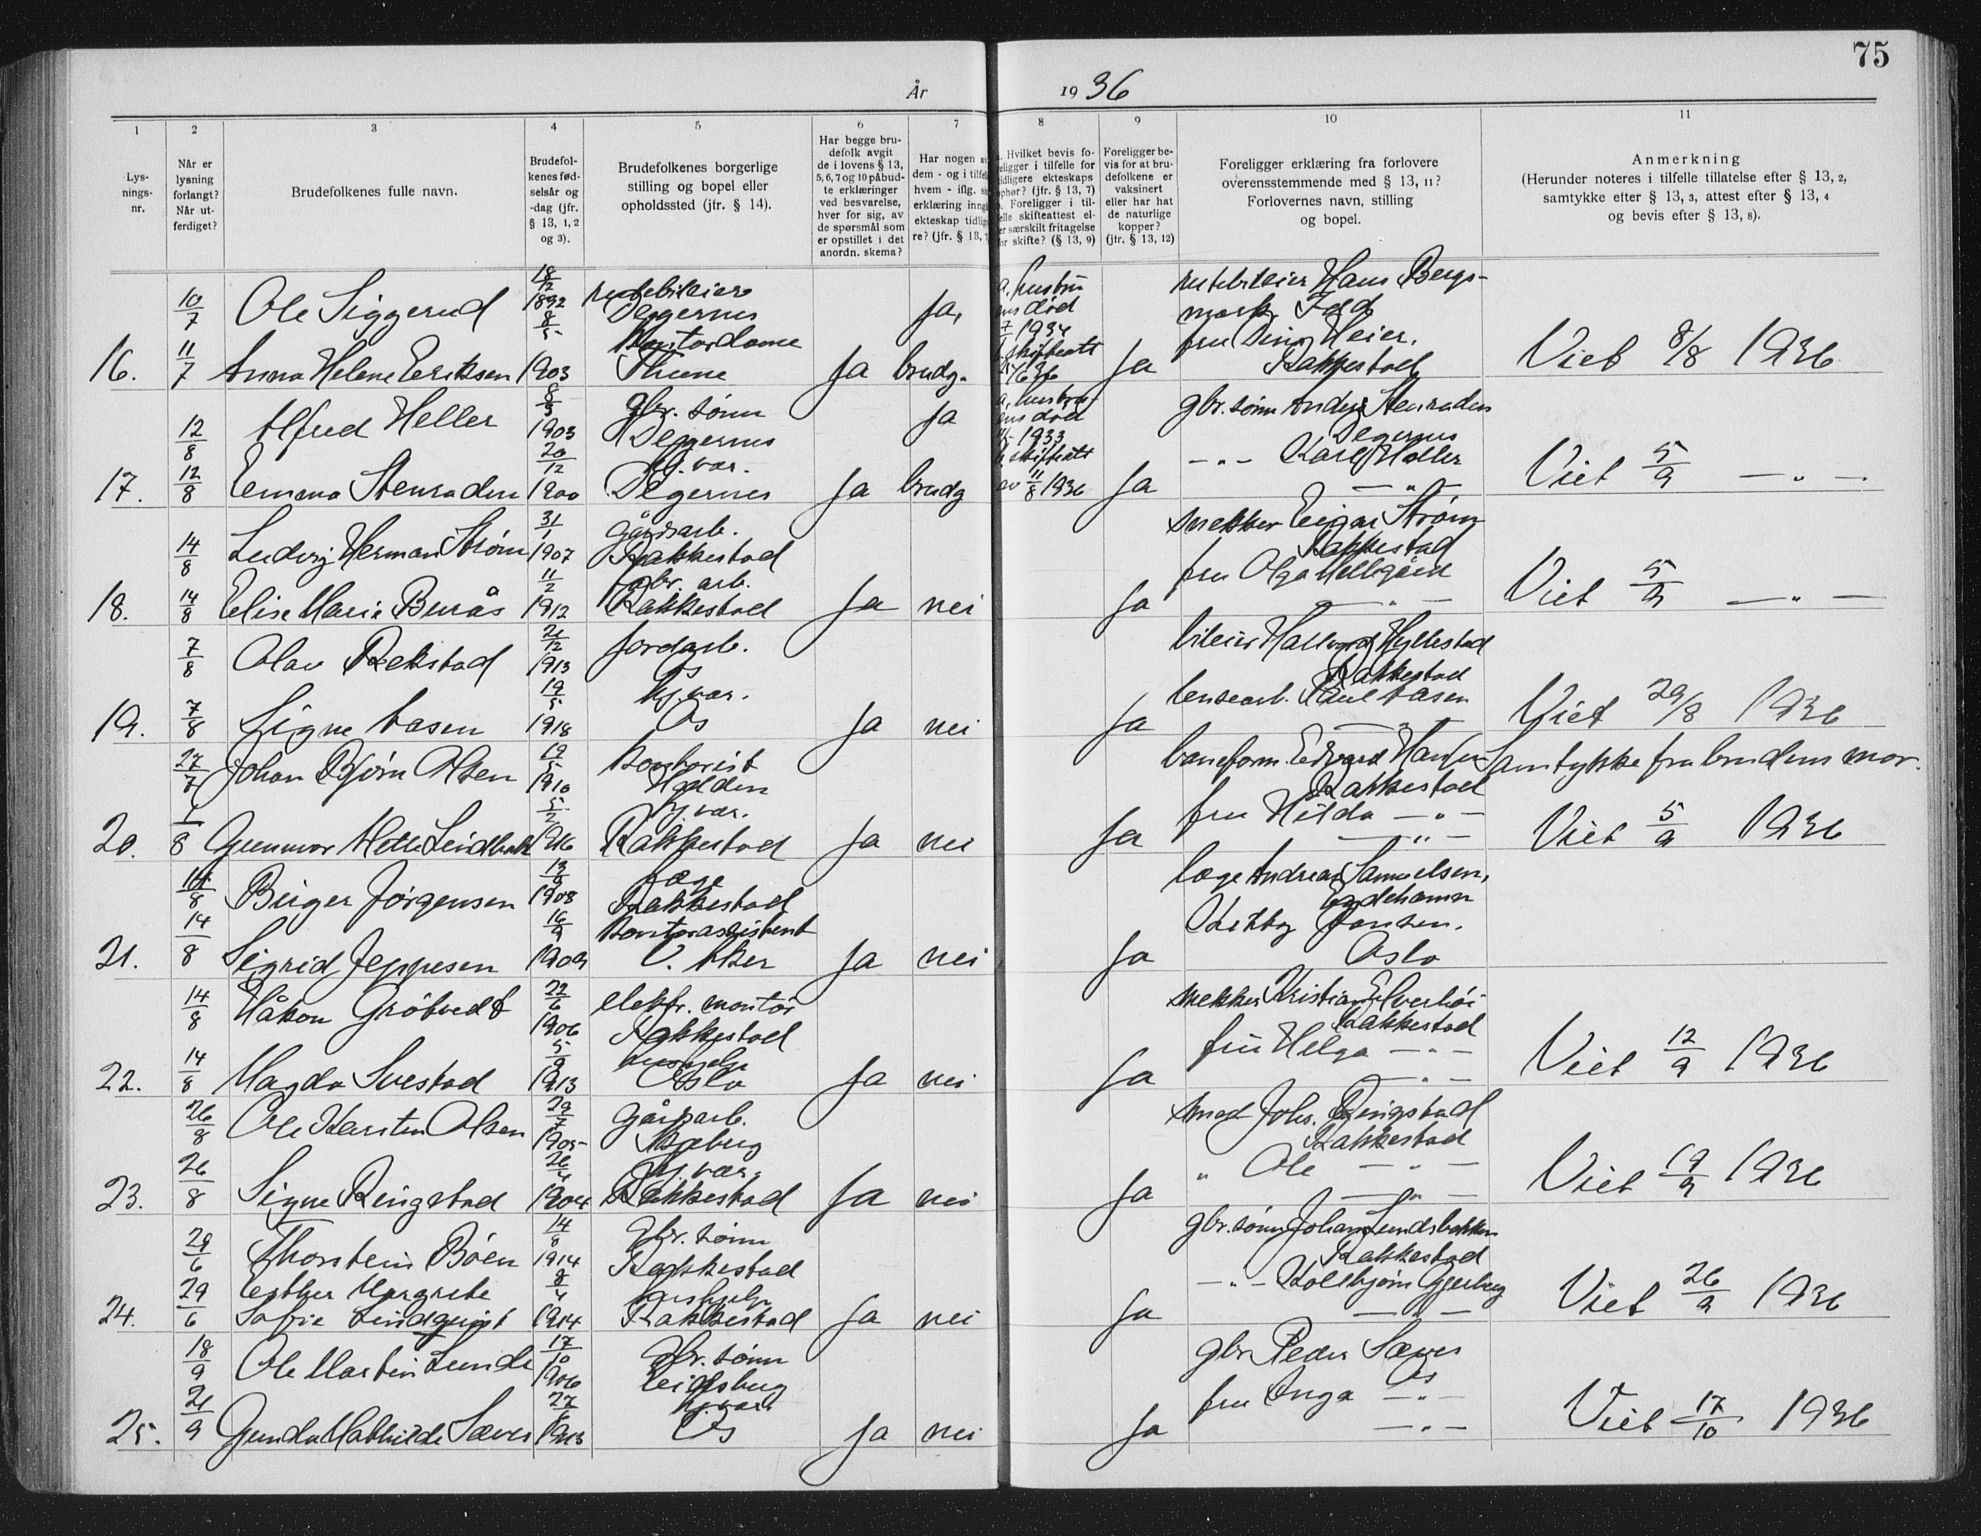 75
År 1936
1 2 3 4 5 6 7 8 9 10 11
Lys-
nings-
nr.
Når er
lysning
forlangt?
Når ut-
ferdiget?
Brudefolkenes fulle navn.
Brudefol-
kenes fød-
selsår og
-dag (jfr.
§ 13, 1, 2
og 3).
Brudefolkenes borgerlige
stilling og bopel eller
opholdssted (jfr. § 14).
Har begge bru-
defolk avgit
de i lovens § 13,
5, 6, 7 og 10 påbud-
te erklæringer
ved besvarelse,
hver for sig, av
de spørsmål som
er opstillet i det
anordn. skema?
Har nogen
dem - og i tilfel
hvem - iflg.
erklæring inng
ekteskap tidlig
re? (jfr. § 13,
Hvilket bevis fo-
religger i tilfelle for
tidligere ekteskaps
ophør? (jfr. § 13, 7)
Foreligger i til-
felle skifteattest el-
ler særskilt fritagelse
for skifte? (§ 13, 9)
Foreligger be-
vis for at bru-
defolkene er
vaksinert
eller har hat
de naturlige
kopper?
(jfr. § 13, 12)
Foreligger erklæring fra forlovere
overensstemmende med § 13, 11?
Forlovernes navn, stilling
og bopel.
Anmerkning
(Herunder noteres i tilfelle tillatelse efter § 13, 2,
samtykke efter § 13, 3, attest efter § 13, 4
og bevis efter § 13, 8).
10/7 Ole Siggerud 18/12 1892 rutebileier Degernes ja, a. hustru ens død 1934 rutebileier Hans Bergs-
mark Idd
16. 11/7 Anna Helene Eriksen 8/5 1903 Kontordame Thune Ja brudg. b. skifteatt 1936 Ja fru Heier, Rakkestad Viet 8/8 1936
12/8 Alfred Heller 8/3 1903 gbr. sønn Degernes ja a. hustru ens død 1933 gbr. sønn Anders Stenraden Degernes
17. 12/8 Emma Stenraden 20/12 1900 hj. vær. Degernes Ja brudg b. skifteatt av 11/8 1936 Ja -"- Karl Heller -"- Viet 5/9 -"-
14/8 Ludvig Herman Strøm 31/1 1907 gårdsarb. Rakkestad snekker Einar Strøm Rakkestad
18. 14/8 Elise Marie Buraas 11/2 1912 fabr. arb. Rakkestad Ja nei Ja fru Olga -"- Viet 5/9 -"-
7/8 Olav Rekstad 21/12 1913 jordarb. Os bileier Hallvard Hyllestad Rakkestad
19. 7/8 Signe 19/5 1918 hj. vær. Os Ja nei Ja lensearb. Paul Viet 29/8 1936
27/7 Johan Bjørn Olsen 19/5 1910 Kontorist Halden baneform. Edvard Rakkestad Samtykke fra brudens mor.
20. 1/8 Gunnvor 5/2 1916 hj. vær. Rakkestad Ja nei Ja fru Hilda -"- -"- Viet 5/9 1936
14/8 Birger Jørgensen 1908 læge Rakkestad læge Andreas Samuelsen,
21. 14/8 Sigrid Jeppesen 16/9 1909 Kontorassistent V. Aker Ja nei Ja Kitty Jansen. Oslo
14/8 Håkon Grøtvedt 22/6 1906 elektr. montør Rakkestad snekker Kristian Elverhøi Rakkestad
22. 14/8 Magda Svestad 5/9 1913 hushjelp Oslo Ja nei Ja fru Helga -"- -"- Viet 12/9 1936
26/8 Ole Karsten Olsen 29/7 1905 gårdsarb. Skjeberg smed Johs. Ringstad Rakkestad
23. 26/8 Signe Ringstad 26/4 1904 hj. vær. Rakkestad Ja nei Ja " Ole -"- -"- Viet 19/9 1936
29/6 Thorstein Bøen 14/8 1914 gbr. sønn Rakkestad gbr. sønn Johan Lundsbakken Rakkestad
29/6 Esther Margrete
24. Sofie Lindquist 8/4 1914 hushjelp Rakkestad Ja nei Ja -"- Kolbjørn Gjerberg -"- Viet 26/9 1936
18/9 Ole Martin Lunde 17/10 1906 gbr. sønn Eidsberg gbr Peder Sæves Os
25. 21/9 Gunda Mathilde Sæves hj. vær. Os Ja nei Ja fru Inga -"- -"- Viet 17/10 1936